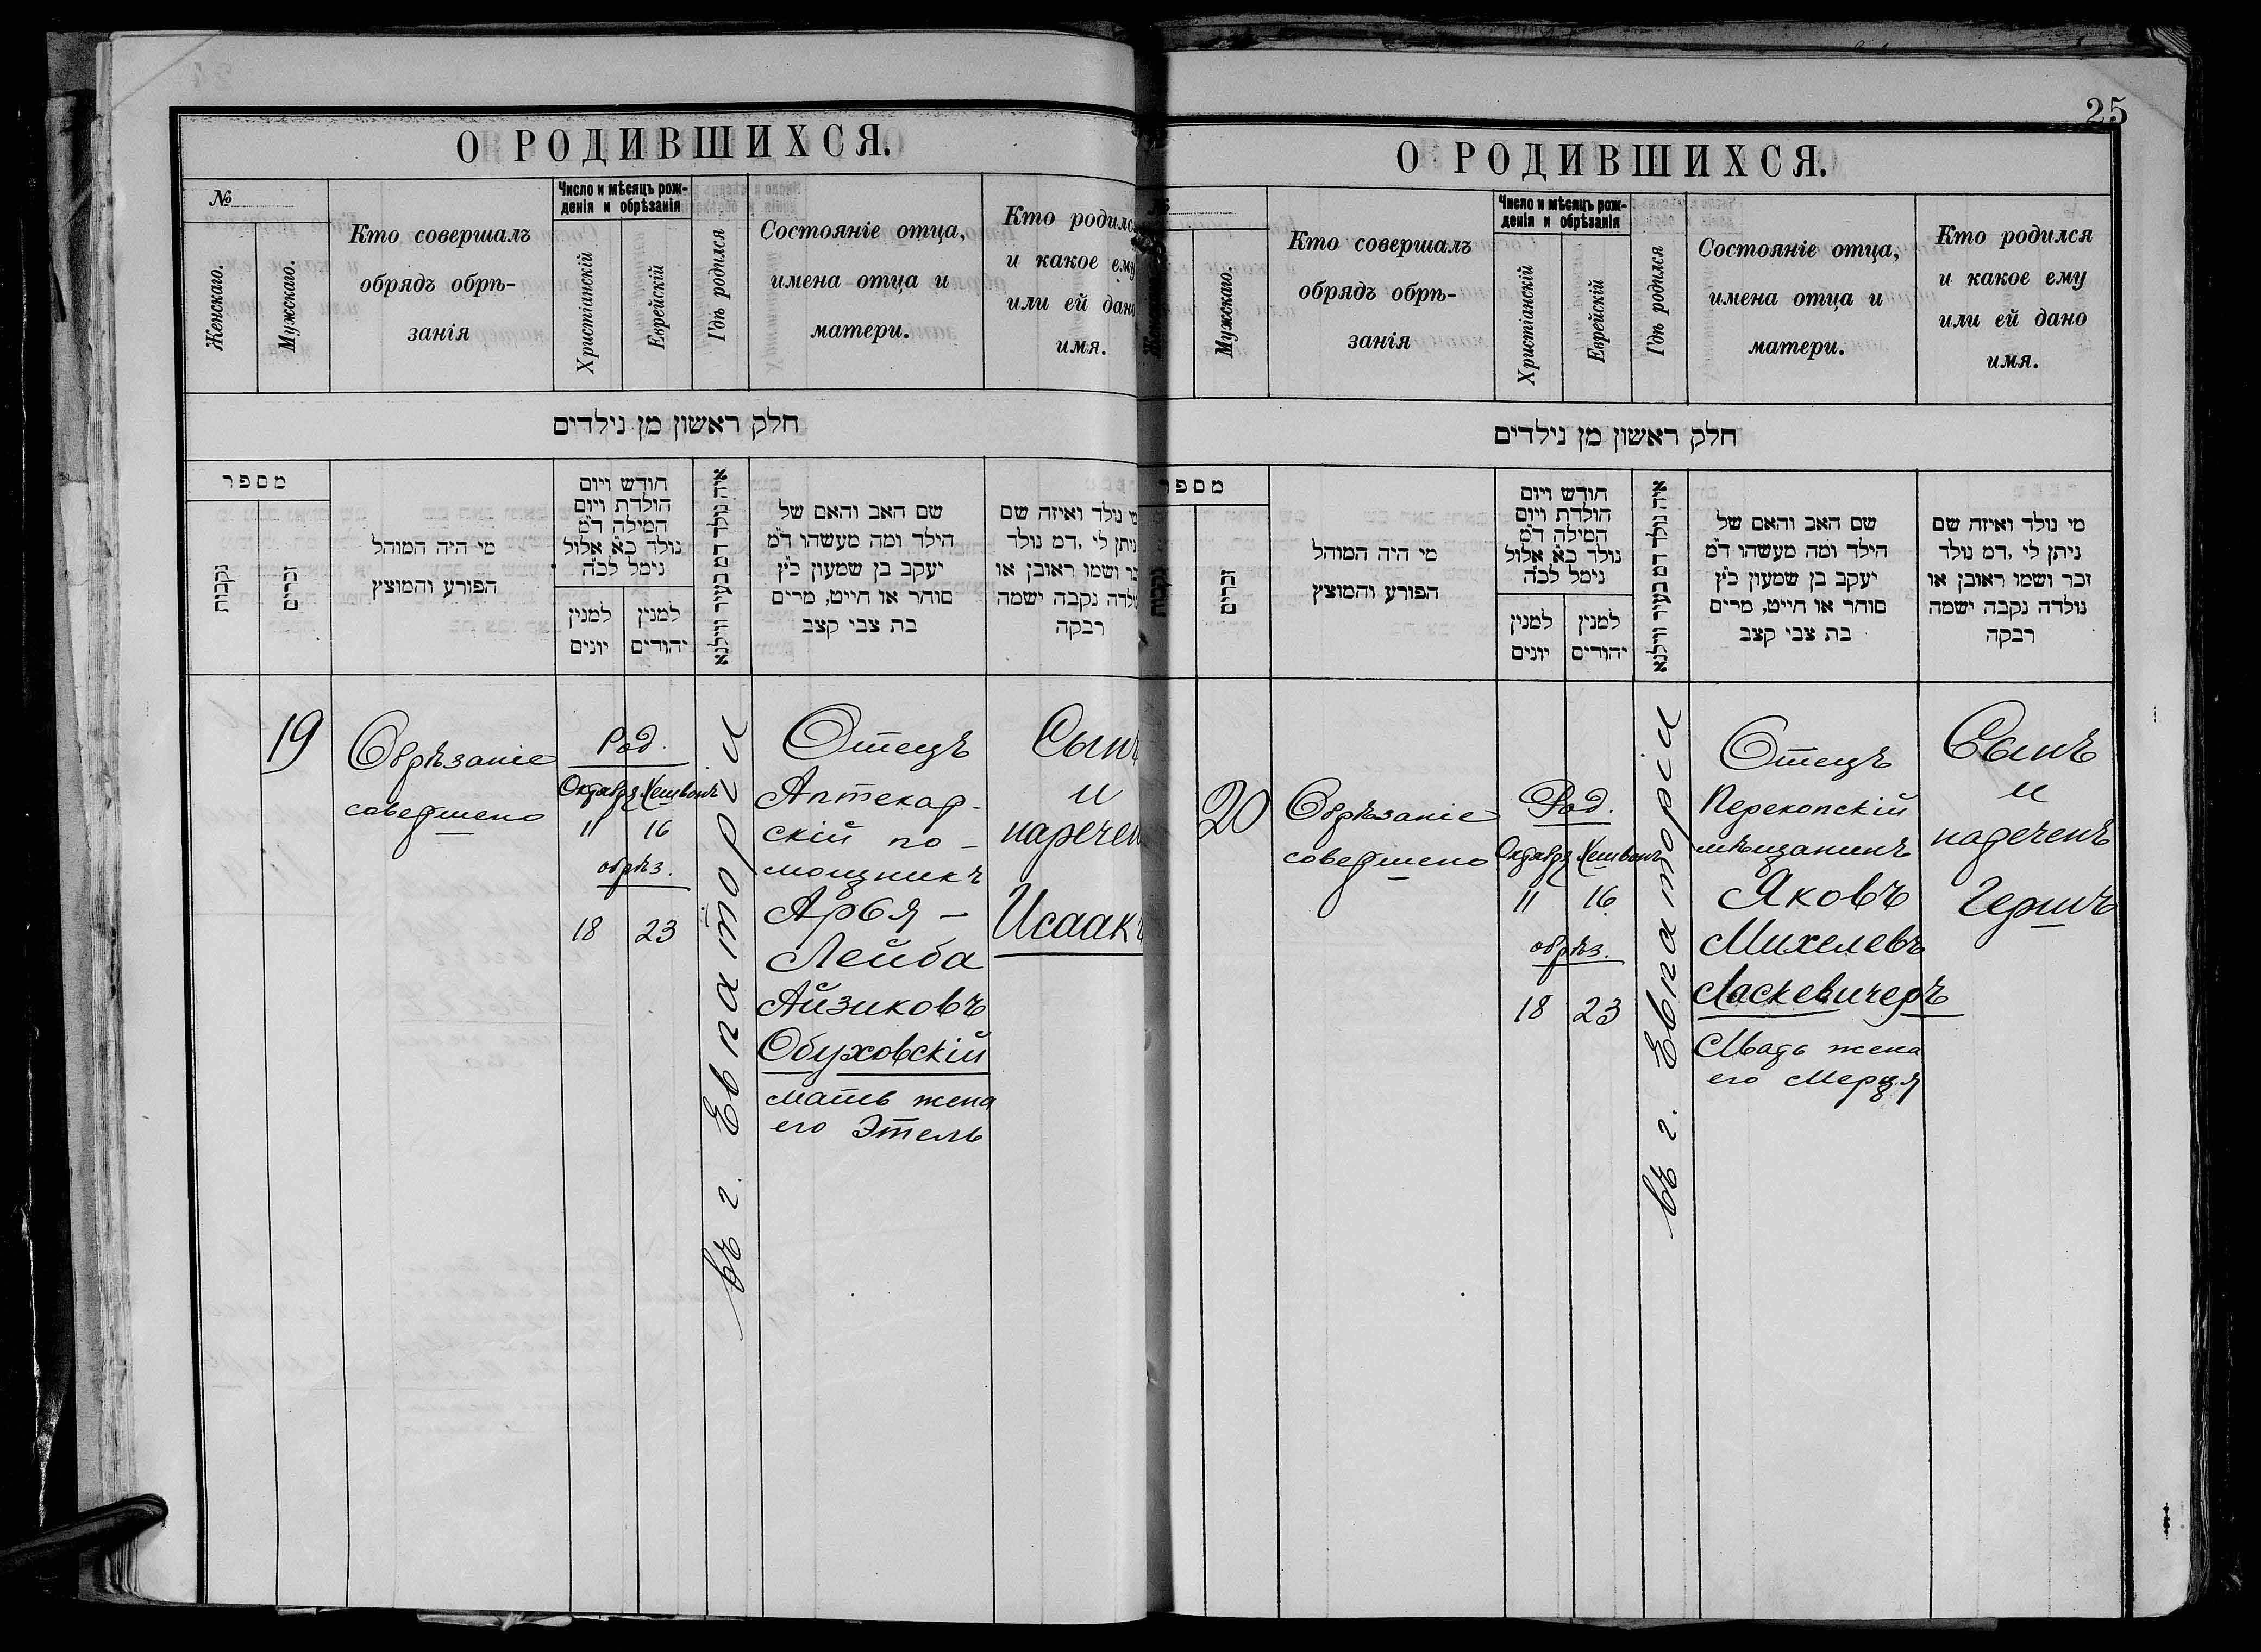 25
О РОДИВШИХСЯ.
№
Женскаго.
Мужскаго.
Кто совершалъ
обрядъ обрѣ-
занія
Число и мѣсяцъ рож-
денія и обрѣзанія
Христіанскій
Еврейскій
Гдѣ родился
Состояніе отца,
имена отца и
матери.
Кто родилс
и какое ему
или ей дано
имя.
חלק ראשון מן נילדים
מספר
נקבות
זכרים
מי היה המוהל
הפורע והמוצץ
חודש ויום
הולדת ויום
המילה ד״מ
נולד כ״א אלול
נימל לכ״ה
למנין
יונים
למנין
יהודים
איה נולד דמ בעיר ווילנא
שם האב והאם של
הילד ומה מעשהו ד״מ
יעקב בן שמעון כ״ץ
סוחר או חייט, מרים
בת צבי קצב
מי נולד ואיזה שם
ניתן לי ,דמ נולד
כר ושמו ראובן או
ולדה נקבה ישמה
רבקה
19
Обрѣзаніе
совершено
Род.
Октября Хешвонъ
11 16
обрѣз.
18 23
въ г. Евпаторіи
Отецъ
Аптекар-
скій по-
мощникъ
Арья-
Лейба
Айзиковъ
Обуховскій
мать жена
его Этель
Сынъ
и
наречен
Исаакъ
О РОДИВШИХСЯ.
№
Мужскаго.
Кто совершалъ
обрядъ обрѣ-
занія
Число и мѣсяцъ рож-
денія и обрѣзанія
Христіанскій
Еврейскій
Гдѣ родился
Состояніе отца,
имена отца и
матери.
Кто родился
и какое ему
или ей дано
имя.
חלק ראשון מן נילדים
מספר
נקבות
זכרים
מי היה המוהל
הפורע והמוצץ
חודש ויום
הולדת ויום
המילה ד״מ
נולד כ״א אלול
נימל לכ״ה
למנין
יונים
למנין
יהודים
איה נולד דמ בעיר ווילנא
שם האב והאם של
הילד ומה מעשהו ד״מ
יעקב בן שמעון כ״ץ
סוחר או חייט, מרים
בת צבי קצב
מי נולד ואיזה שם
ניתן לי ,דמ נולד
זכר ושמו ראובן או
נולדה נקבה ישמה
רבקה
20
Обрѣзаніе
совершено
Род.
Октября Хешвонъ
11 16
обрѣз.
18 23
въ г. Евпаторіи
Отецъ
Перекопскій
мѣщанинъ
Яковъ
Михелевъ
Ласкевичеръ
Мать жена
его Мерця
Сынъ
и
нареченъ
Гершъ